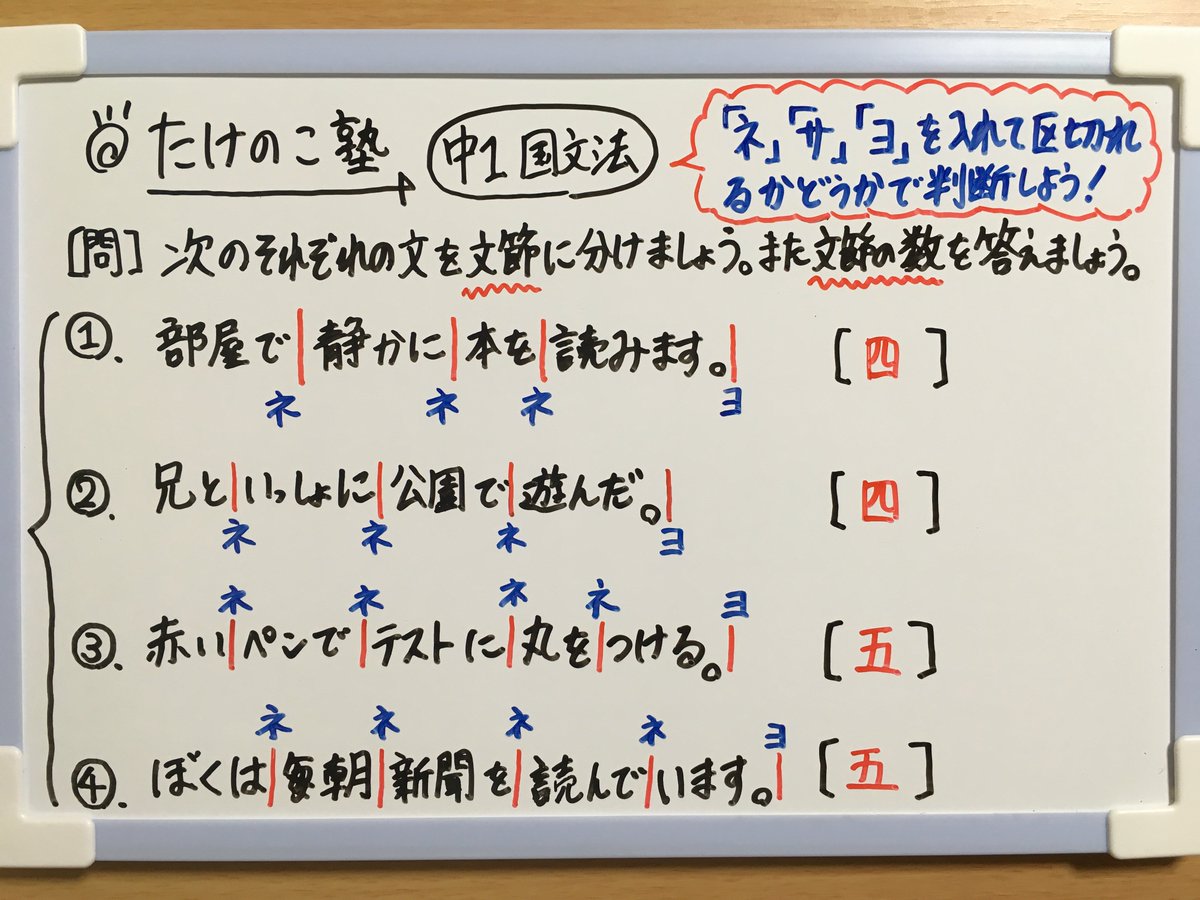 たけのこ塾
中1国文法
「ネ」「サ」「ヨ」を入れて区切れ
るかどうかで判断しよう!
[問] 次のそれぞれの文を文節に分けましょう。また文節の数を答えましょう。
①. 部屋で|静かに|本を|読みます。| [四]
ネ ネ ネ ヨ
②. 兄と|いっしょに|公園で|遊んだ。| [四]
ネ ネ ネ ヨ
ネ ネ ネ ネ ヨ
③. 赤い|ペンで|テストに|丸を|つける。| [五]
ネ ネ ネ ネ ヨ
④. ぼくは|毎朝|新聞を|読んで|います。| [五]